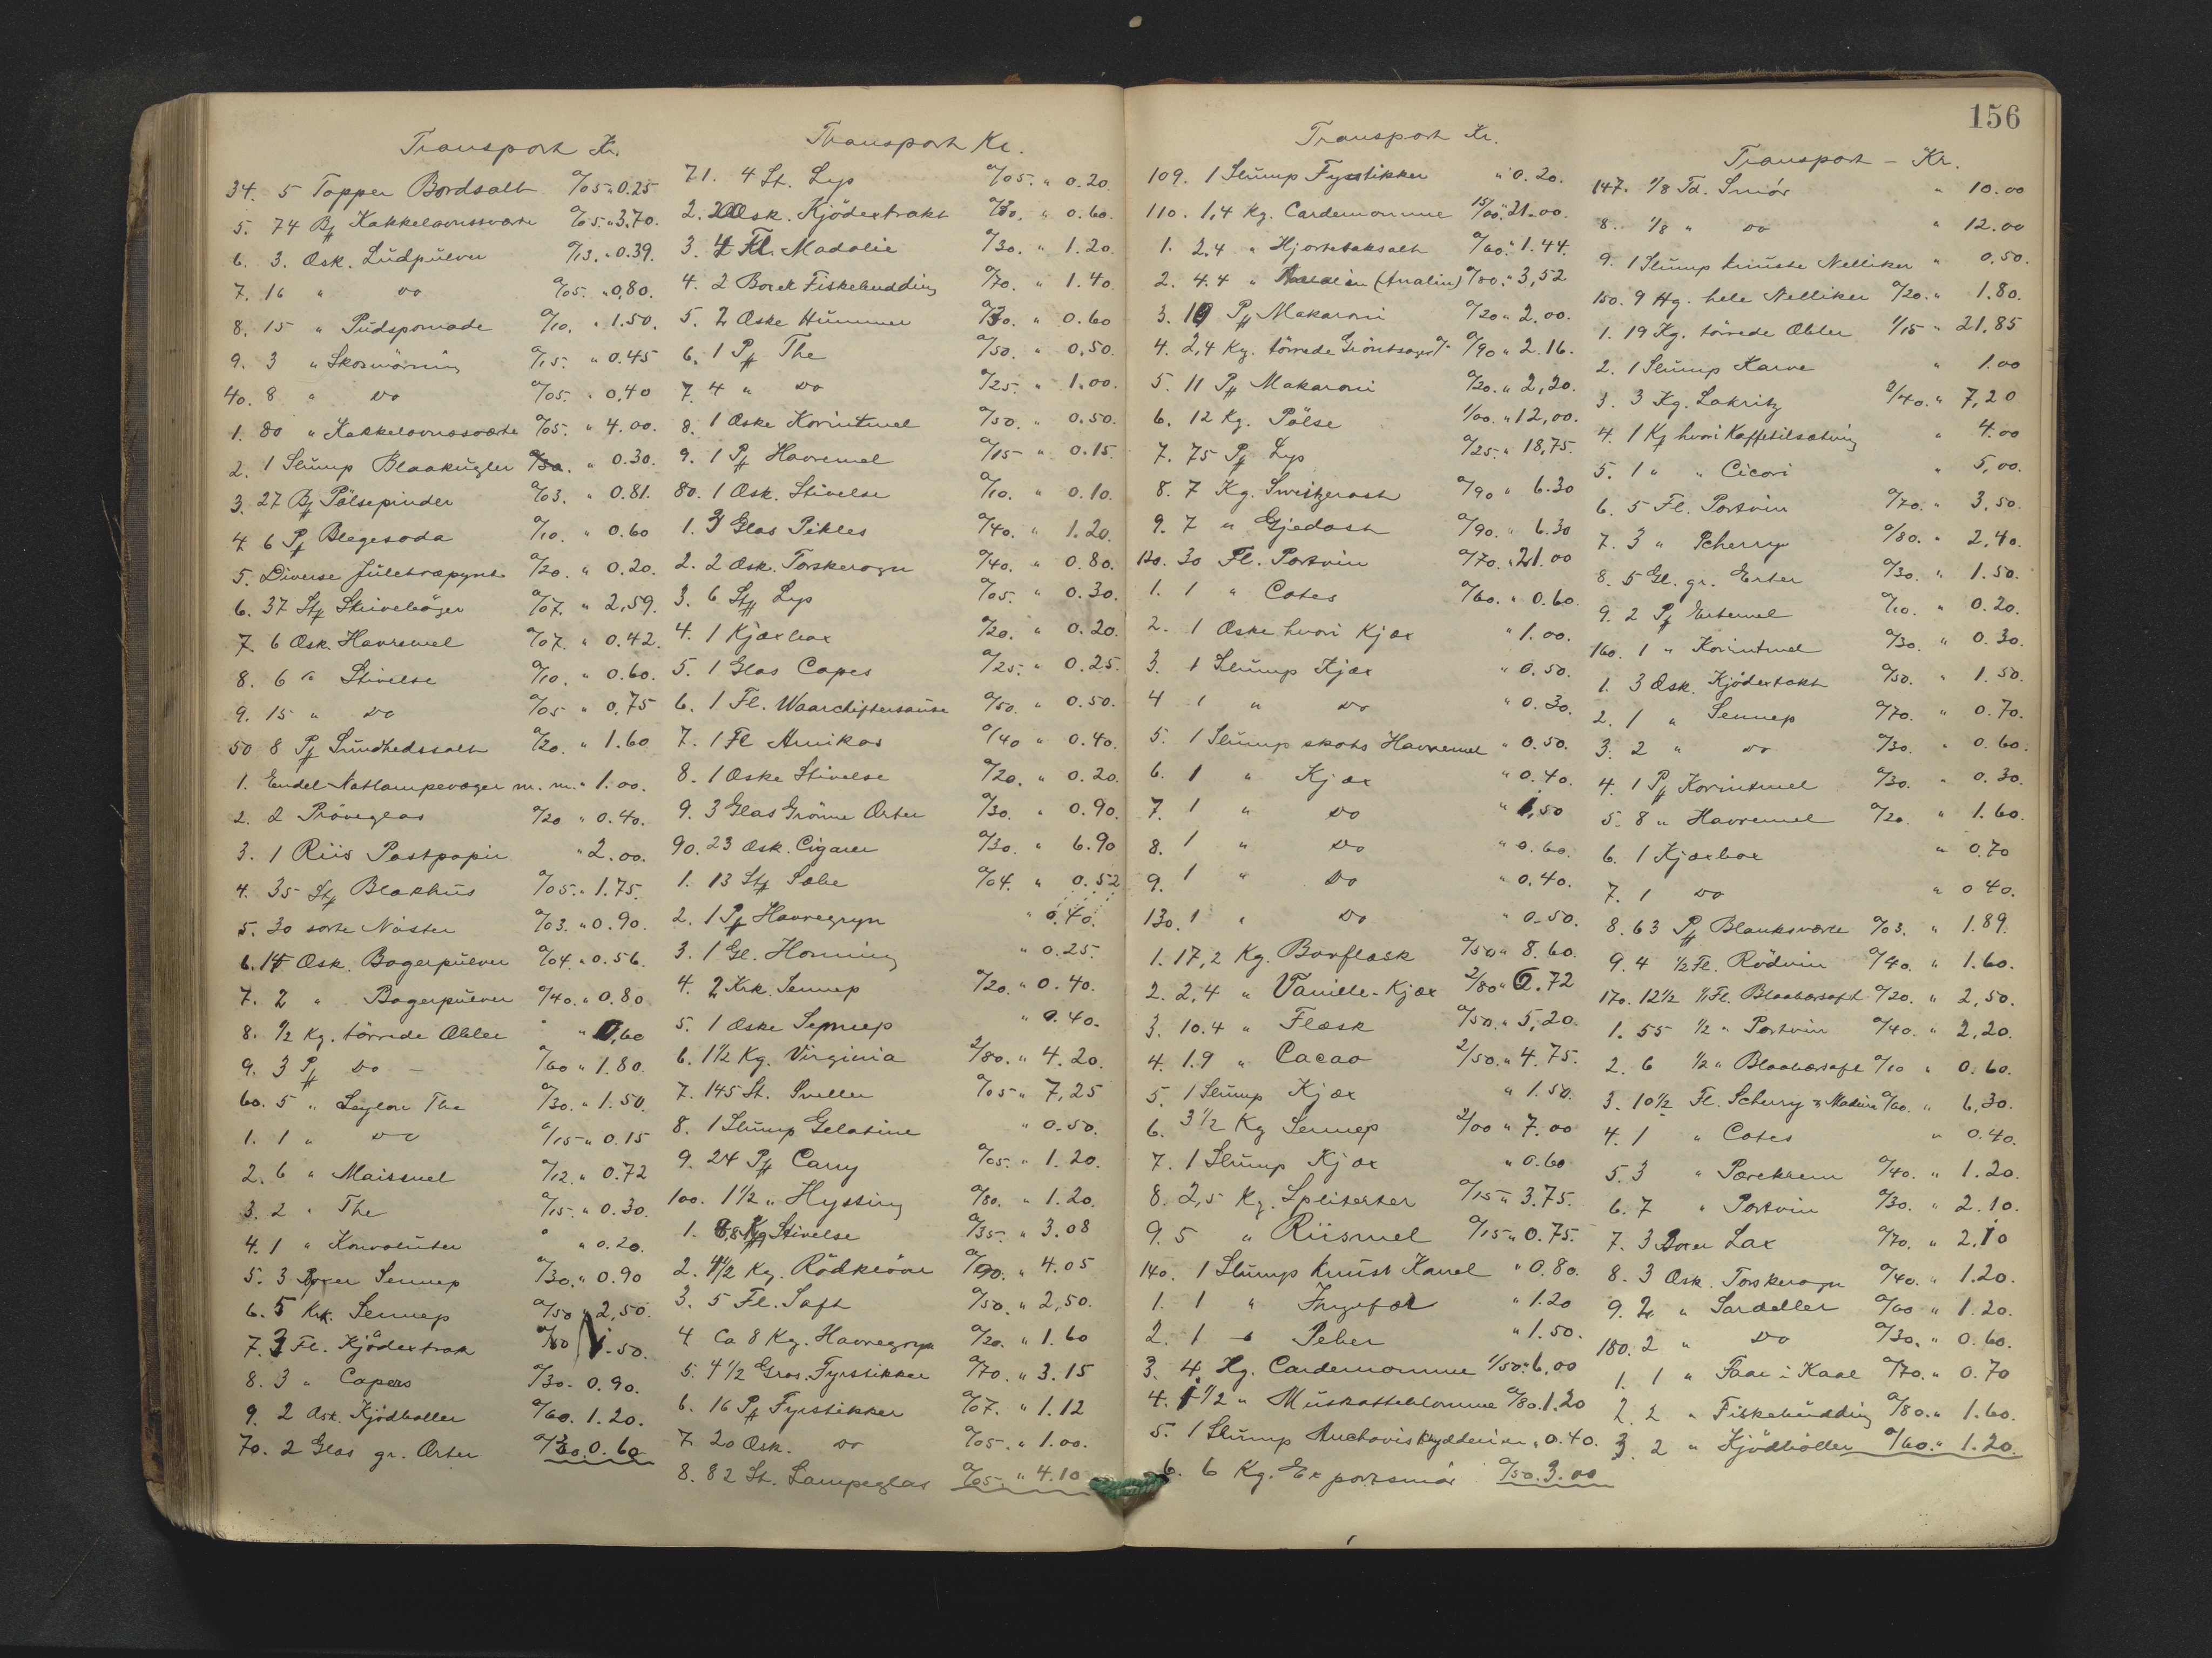 156
Transport Kr.
34. 5 Topper Bordsalt a/05 " 0.25
5. 74 Bf Kakkelovnssværte a/05. " 3.70.
6. 3. Æsk. Ludpulver a/13. " 0.39.
7. 16 " do a/05. " 0,80.
8. 15 " Pudspomade a/10. " 1.50.
9. 3 " Skosmörning a/15. " 0.45
40. 8 " do a/05. " 0,40
1. 80 " Kakkelovnssværte a/05. " 4.00.
2. 1 Slump Blaakugler " 0.30.
3. 27 Bf Pölsepinder a/03. " 0.81.
4. 6 Pf Blegesoda a/10. " 0.60
5. Diverse Juletræpynt a/20. " 0.20.
6. 37 Stf Skrivebøger a/07. " 2,59.
7. 6 Æsk. Havremel a/07. " 0.42.
8. 6 " Stivelse a/10. " 0.60.
9. 15 " do a/05 " 0,75
50 8 Pf Sundhedssalt a/20. " 1.60
1. Endel Natlampevæger m. m. " 1.00.
2. 2 Pröveglas a/20 " 0.40.
3. 1 Riis Postpapir " 2.00.
4. 35 Stf Blækhus a/05. " 1.75.
5. 30 sorte Nöster a/03. " 0.90.
6. 14 Æsk. Bagerpulver a/04. " 0.56.
7. 2 " Bagerpulver a/40. " 0.80
8. 1/2 Kg. törrede Æbler " 0,60
9. 3 Pf do - a/60 " 1.80.
60. 5 " Ceylon The a/30. " 1.50.
1. 1 " do a/15 " 0.15
2. 6 " Maismel a/12. " 0.72
3. 2 " The a/15. " 0.30.
4. 1 " Konvolutter " 0.20.
5. 3 Boxer Sennep a/30. " 0.90
6. 5 Krk. Sennep a/50 " 2,50.
7. 3 Fl. Kjödextrak a/50 1.50.
8. 3 " Capers a/30. 0.90.
9. 2 Æsk. Kjödboller a/60. 1.20.
70. 2 Glas gr. Ærter a/30. 0.60
Transport Kr.
71. 4 St. Lys a/05. " 0.20.
2. 2 Æsk. Kjödextrakt a/30. " 0.60.
3. 4 Fl. Madolie a/30. " 1.20.
4. 2 Boxer Fiskebudding a/70. " 1.40.
5. 2 Æske Hummer a/30. " 0.60
6. 1 Pf The a/50. " 0,50.
7. 4 " do a/25. " 1.00.
8. 1 Æske Korintmel a/50. " 0.50.
9. 1 Pf Havremel a/15 " 0.15.
80. 1 Æsk. Stivelse a/10. " 0.10.
1. 3 Glas Pikles a/40. " 1.20.
2. 2 Æsk. Torskerogn a/40. " 0.80.
3. 6 Stf Lys a/05. " 0.30.
4. 1 Kjæxbox a/20. " 0.20.
5. 1 Glas Capes a/25. " 0.25.
6. 1 Fl. Waarchiftersause a/50. " 0.50.
7. 1 Fl Arnikas a/40 " 0.40.
8. 1 Æske Stivelse a/20. " 0.20.
9. 3 Glas Grönne Ærter a/30. " 0.90.
90. 23 Æsk. Cigarer a/30. " 6.90
1. 13 Stf Sæbe a/04. " 0.52
2. 1 Pf Havregryn " 0.40.
3. 1 Gl. Honning " 0.25.
4. 2 Krk. Sennep a/20. " 0.40.
5. 1 Æske Sennep " 0.40.
6. 1 1/2 Kg. Virginia 2/80. " 4.20.
7. 145 St. Sveller a/05 " 7,25
8. 1 Slump Gelatine " 0.50.
9. 24 Pf Carry a/05. " 1.20.
100. 1 1/2 " Hyssing a/80. " 1.20.
1. 8,8 Kg Stivelse a/35. " 3.08
2. 4 1/2 Kg. Rödklöver a/90. " 4.05
3. 5 Fl. Saft a/50. " 2,50.
4 Ca 8 Kg. Havregryn a/20. " 1.60
5. 4 1/2 Gros. Fyrstikker a/70. " 3.15
6. 16 Pf Fyrstikker a/07. " 1.12
7. 20 Æsk. do a/05. " 1.00.
8. 82 St. Lampeglas a/05. " 4.10
Transport Kr.
109. 1 Slump Fyrstikker " 0.20.
110. 1,4 Kg. Cardemomme 15/00. " 21.00.
1. 2.4 " Hjortetaksalt a/60. " 1.44.
2. 4.4 " (Analin) a/80. " 3,52
3. 10 Pf Makaroni a/20 " 2.00.
4. 2,4 Kg. törrede Gröntsager a/90 " 2.16.
5. 11 Pf Makaroni a/20. " 2,20.
6. 12 Kg. Pölse 1/00. " 12,00.
7. 75 Pf Lys a/25. " 18,75.
8. 7 Kg. Sweitzerost a/90 " 6.30
9. 7 " Gjedost a/90. " 6.30
120. 30 Fl. Portvin a/70. " 21.00
1. 1 " Cotes a/60. " 0.60.
2. 1 Æske hvori Kjæx " 1.00.
3. 1 Slump Kjæx " 0.50.
4 1 " do " 0.30.
5. 1 Slump skots Havremel " 0.50.
6. 1 " Kjæx " 0.40.
7. 1 " do " 1,50
8. 1 " do " 0.60.
9. 1 " do " 0.40.
130. 1 " do " 0.50.
1. 17,2 Kg. Borflæsk a/50 " 8.60.
2. 2,4 " Vanille-Kjæx 2/80 " 6.72
3. 10.4 " Flæsk a/50. " 5,20.
4. 1.9 " Cacao 2/50. " 4.75.
5. 1 Slump Kjæx " 1.50.
6. 3 1/2 Kg Sennep 2/00 " 7.00
7. 1 Slump Kjæx " 0.60
8. 2,5 Kg. Spliterter a/15 " 3.75.
9. 5 " Riismel a/15 " 0.75.
140. 1 Slump knust Kanel " 0.80.
1. 1 " Ingefær " 1.20
2. 1 " Peber " 1.50.
3. 4. Hg. Cardemomme 1/50. " 6,00
4. 1 1/2 " Muskatteblomme a/80. 1.20
5. 1 Slump Anchoviskrydderier " 0.40.
6. 6 Kg. Exportsmör a/50. 3.00
Transport - Kr.
147. 1/8 Td. Smör " 10.00
8. 1/8 " do " 12.00
9. 1 Slump knuste Nelliker " 0,50.
150. 9 Hg. hele Nelliker a/20. " 1.80.
1. 19 Kg. törrede Æbler 1/15 " 21.85
2. 1 Slump Karve " 1.00
3. 3 Kg. Lakritz 2/40. " 7,20
4. 1 Kf hvori Kaffetilsætning " 4.00
5. 1 " " Cicori " 5,00.
6. 5 Fl. Portvin a/70. " 3,50.
7. 3 " Scherry a/80. " 2,40.
8. 5 Gl. gr. Erter a/30. " 1.50.
9. 2 Pf Ertemel a/10. " 0.20.
160. 1 " Korintmel a/30. " 0.30.
1. 3 Æsk. Kjödextakt a/50. " 1.50.
2. 1 " Sennep a/70. " 0.70.
3. 2 " do a/30. " 0.60.
4. 1 Pf Korintmel a/30. " 0.30.
5. 8 " Havremel a/20. " 1.60.
6. 1 Kjæxbox " 0,70
7. 1 do " 0 40.
8. 63 Pf Blanksværte a/03. " 1.89.
9. 4 1/2 Fl. Rödvin a/40. " 1.60.
170. 12 1/2 1/1 Fl. Blaabærsaft a/20. " 2,50.
1. 55 1/2 " Portvin a/40. " 2,20.
2. 6 1/2 " Blaabærsaft a/10 " 0.60.
3. 10 1/2 Fl. Scherry & Madeira a/60. " 6,30.
4. 1 " Cotes " 0.40.
5. 3 " Pærekrem a/40. " 1.20.
6. 7 " Portvin a/30. " 2.10.
7. 3 Boxer Lax a/70. " 2.10
8. 3 Æsk. Torskerogn a/40. " 1.20.
9. 2 " Sardeller a/60 " 1.20.
180. 2 " do a/30. " 0.60.
1. 1 " Faar i Kaal a/70. " 0.70
2. 2 " Fiskebudding a/80. " 1.60.
3. 2 " Kjödboller a/60. " 1.20.